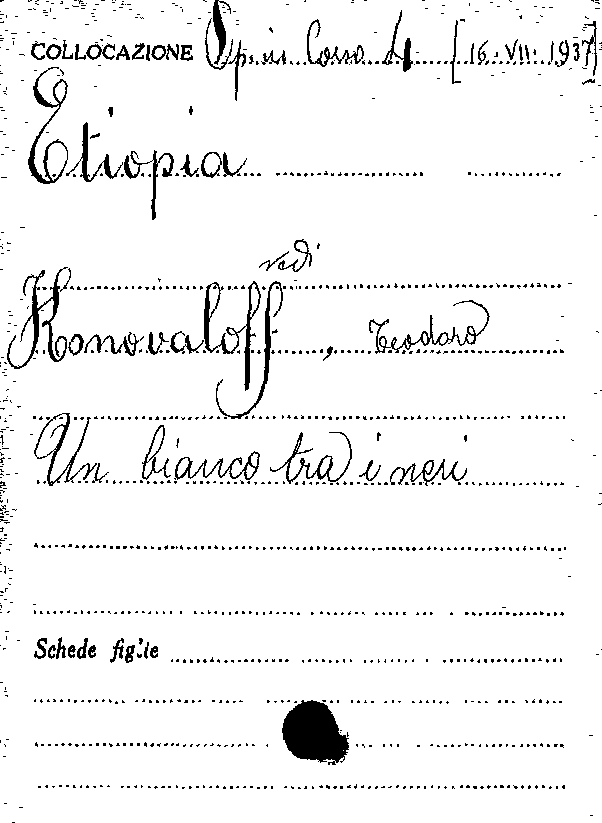 COLLOCAZIONE Op. in Corso 4 [16.VII.1937]
Etiopia
vedi
Konovaloff, Teodoro
Un bianco tra i neri
Schede figlie